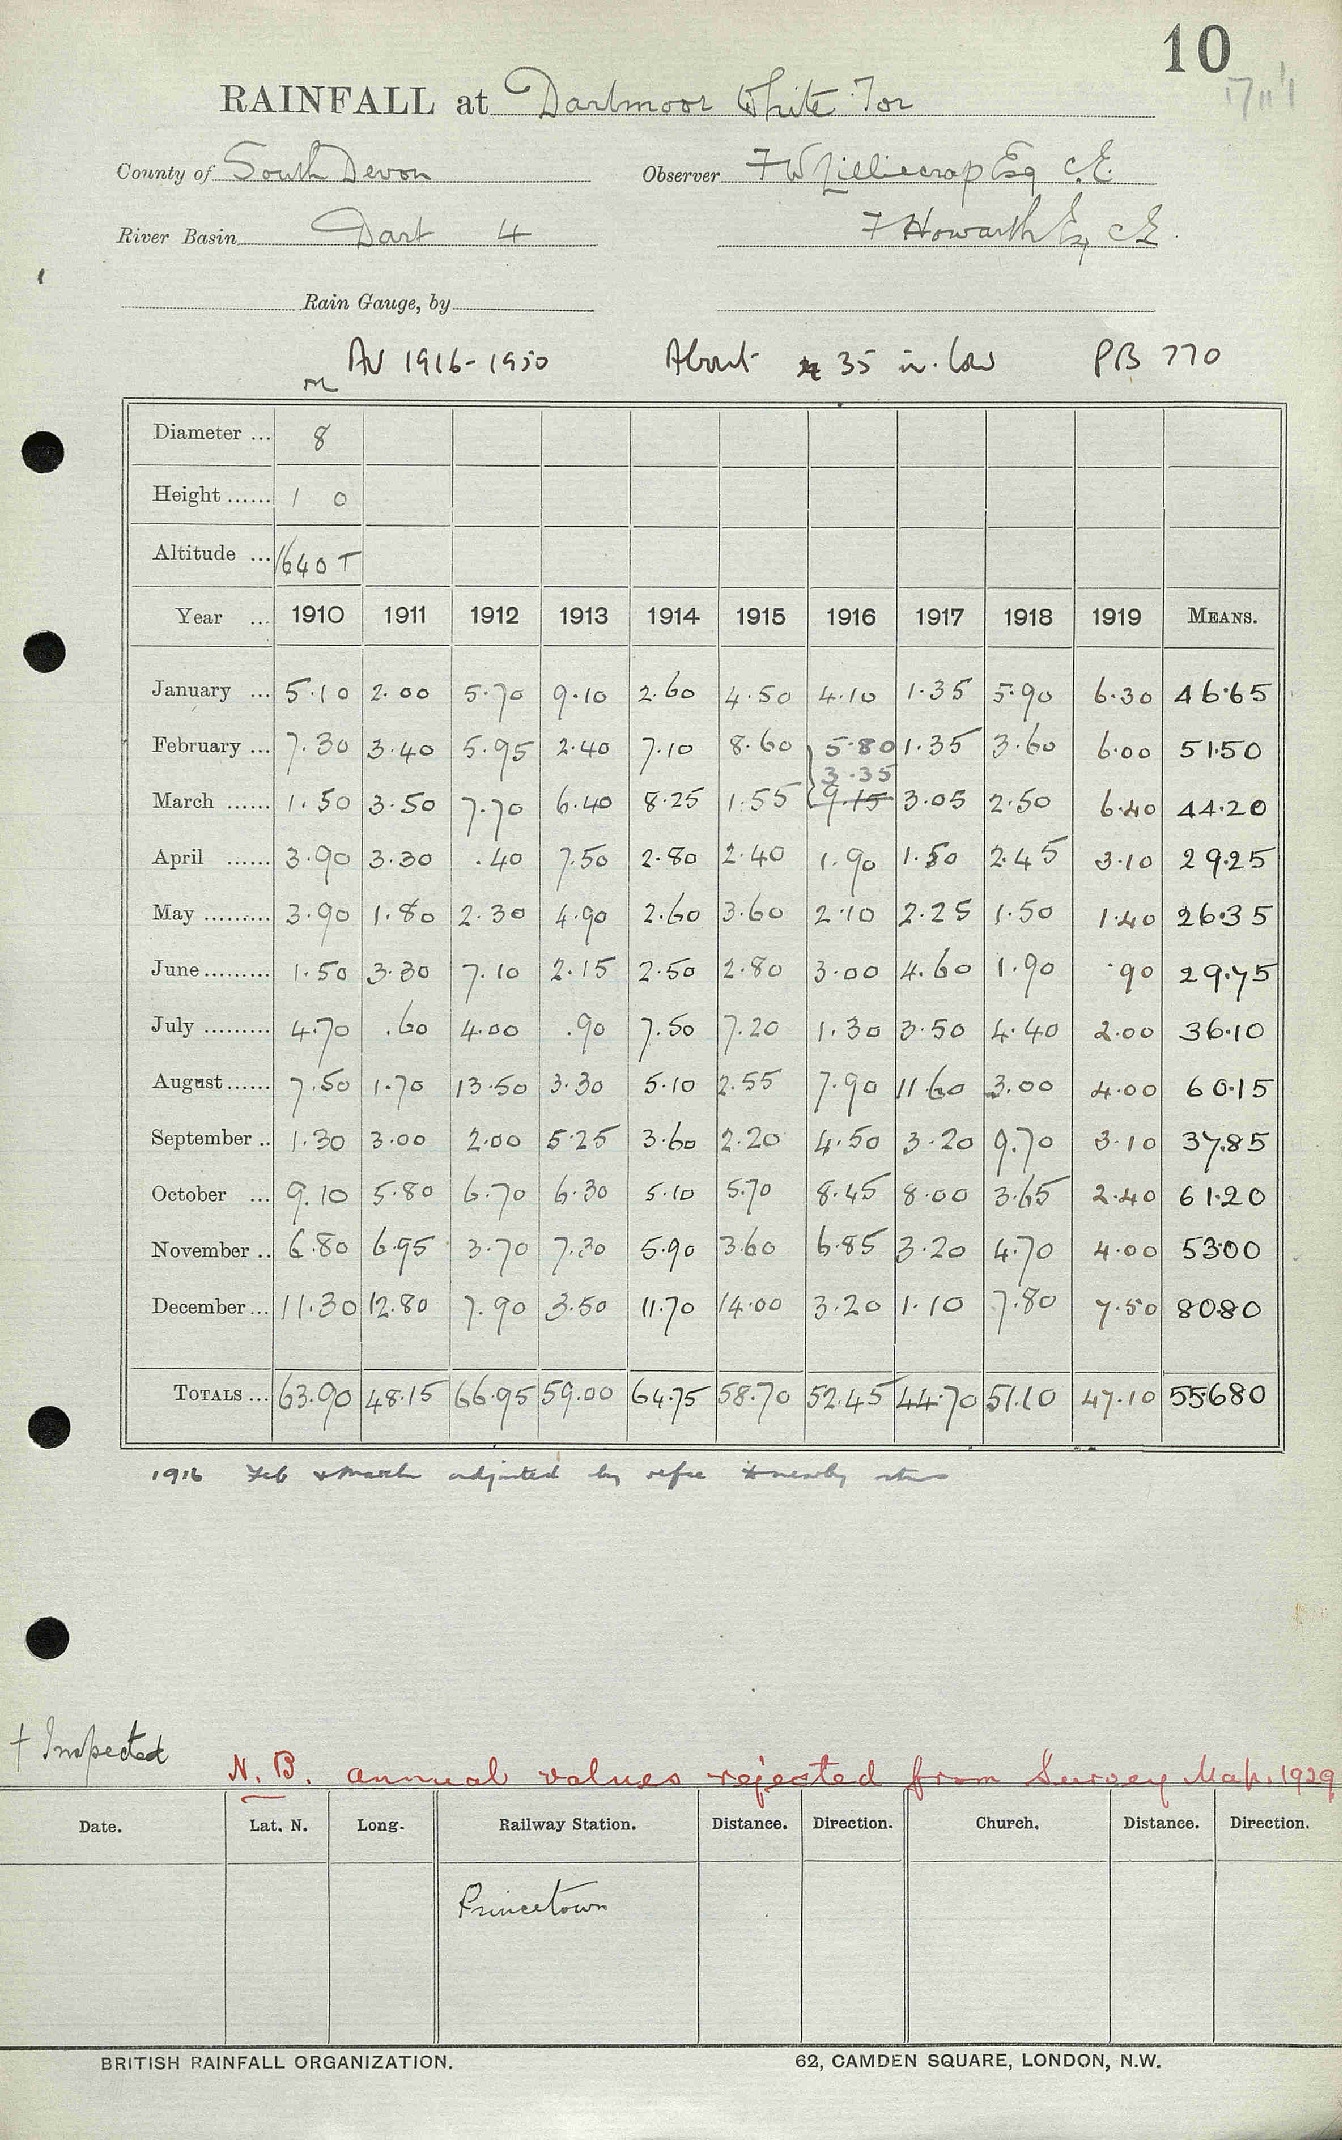 10
RAINFALL at Dartmoor White Tor
County of South Devon Observer F W Lilliecrap Esq C.E.
River Basin Dart 4 F Howarth Esq CE
Rain Gauge, by
AV 1916-1950 About 35 in. low PB 770
M
Diameter ... 8
Height ...... 1 0
Altitude ... 1640 T
Year ... 1910 1911 1912 1913 1914 1915 1916 1917 1918 1919 MEANS.
January ... 5.10 2.00 5.70 9.10 2.60 4.50 4.10 1.35 5.90 6.30 46.65
February ... 7.30 3.40 5.95 2.40 7.10 8.60 5.80 1.35 3.60 6.00 51.50
3.35
March ...... 1.50 3.50 7.70 6.40 8.25 1.55 9.15 3.05 2.50 6.40 44.20
April ...... 3.90 3.30 .40 7.50 2.80 2.40 1.90 1.50 2.45 3.10 29.25
May ......... 3.90 1.80 2.30 4.90 2.60 3.60 2.10 2.25 1.50 1.40 26.35
June ......... 1.50 3.30 7.10 2.15 2.50 2.80 3.00 4.60 1.90 .90 29.75
July ......... 4.70 .60 4.00 .90 7.50 7.20 1.30 3.50 4.40 2.00 36.10
August ...... 7.50 1.70 13.50 3.30 5.10 2.55 7.90 11.60 3.00 4.00 60.15
September .. 1.30 3.00 2.00 5.25 3.60 2.20 4.50 3.20 9.70 3.10 37.85
October ... 9.10 5.80 6.70 6.30 5.10 5.70 8.45 8.00 3.65 2.40 61.20
November .. 6.80 6.95 3.70 7.30 5.90 3.60 6.85 3.20 4.70 4.00 53.00
December ... 11.30 12.80 7.90 3.50 11.70 14.00 3.20 1.10 7.80 7.50 80.80
TOTALS ... 63.90 48.15 66.95 59.00 64.75 58.70 52.45 44.70 51.10 47.10 556.80
1916 Feb & March adjusted by refce to nearby stns
† Inspected
N.B. annual values rejected from Survey Map. 1929
Date. Lat. N. Long. Railway Station. Distance. Direction. Church. Distance. Direction.
Princetown
BRITISH RAINFALL ORGANIZATION. 62, CAMDEN SQUARE, LONDON, N.W.